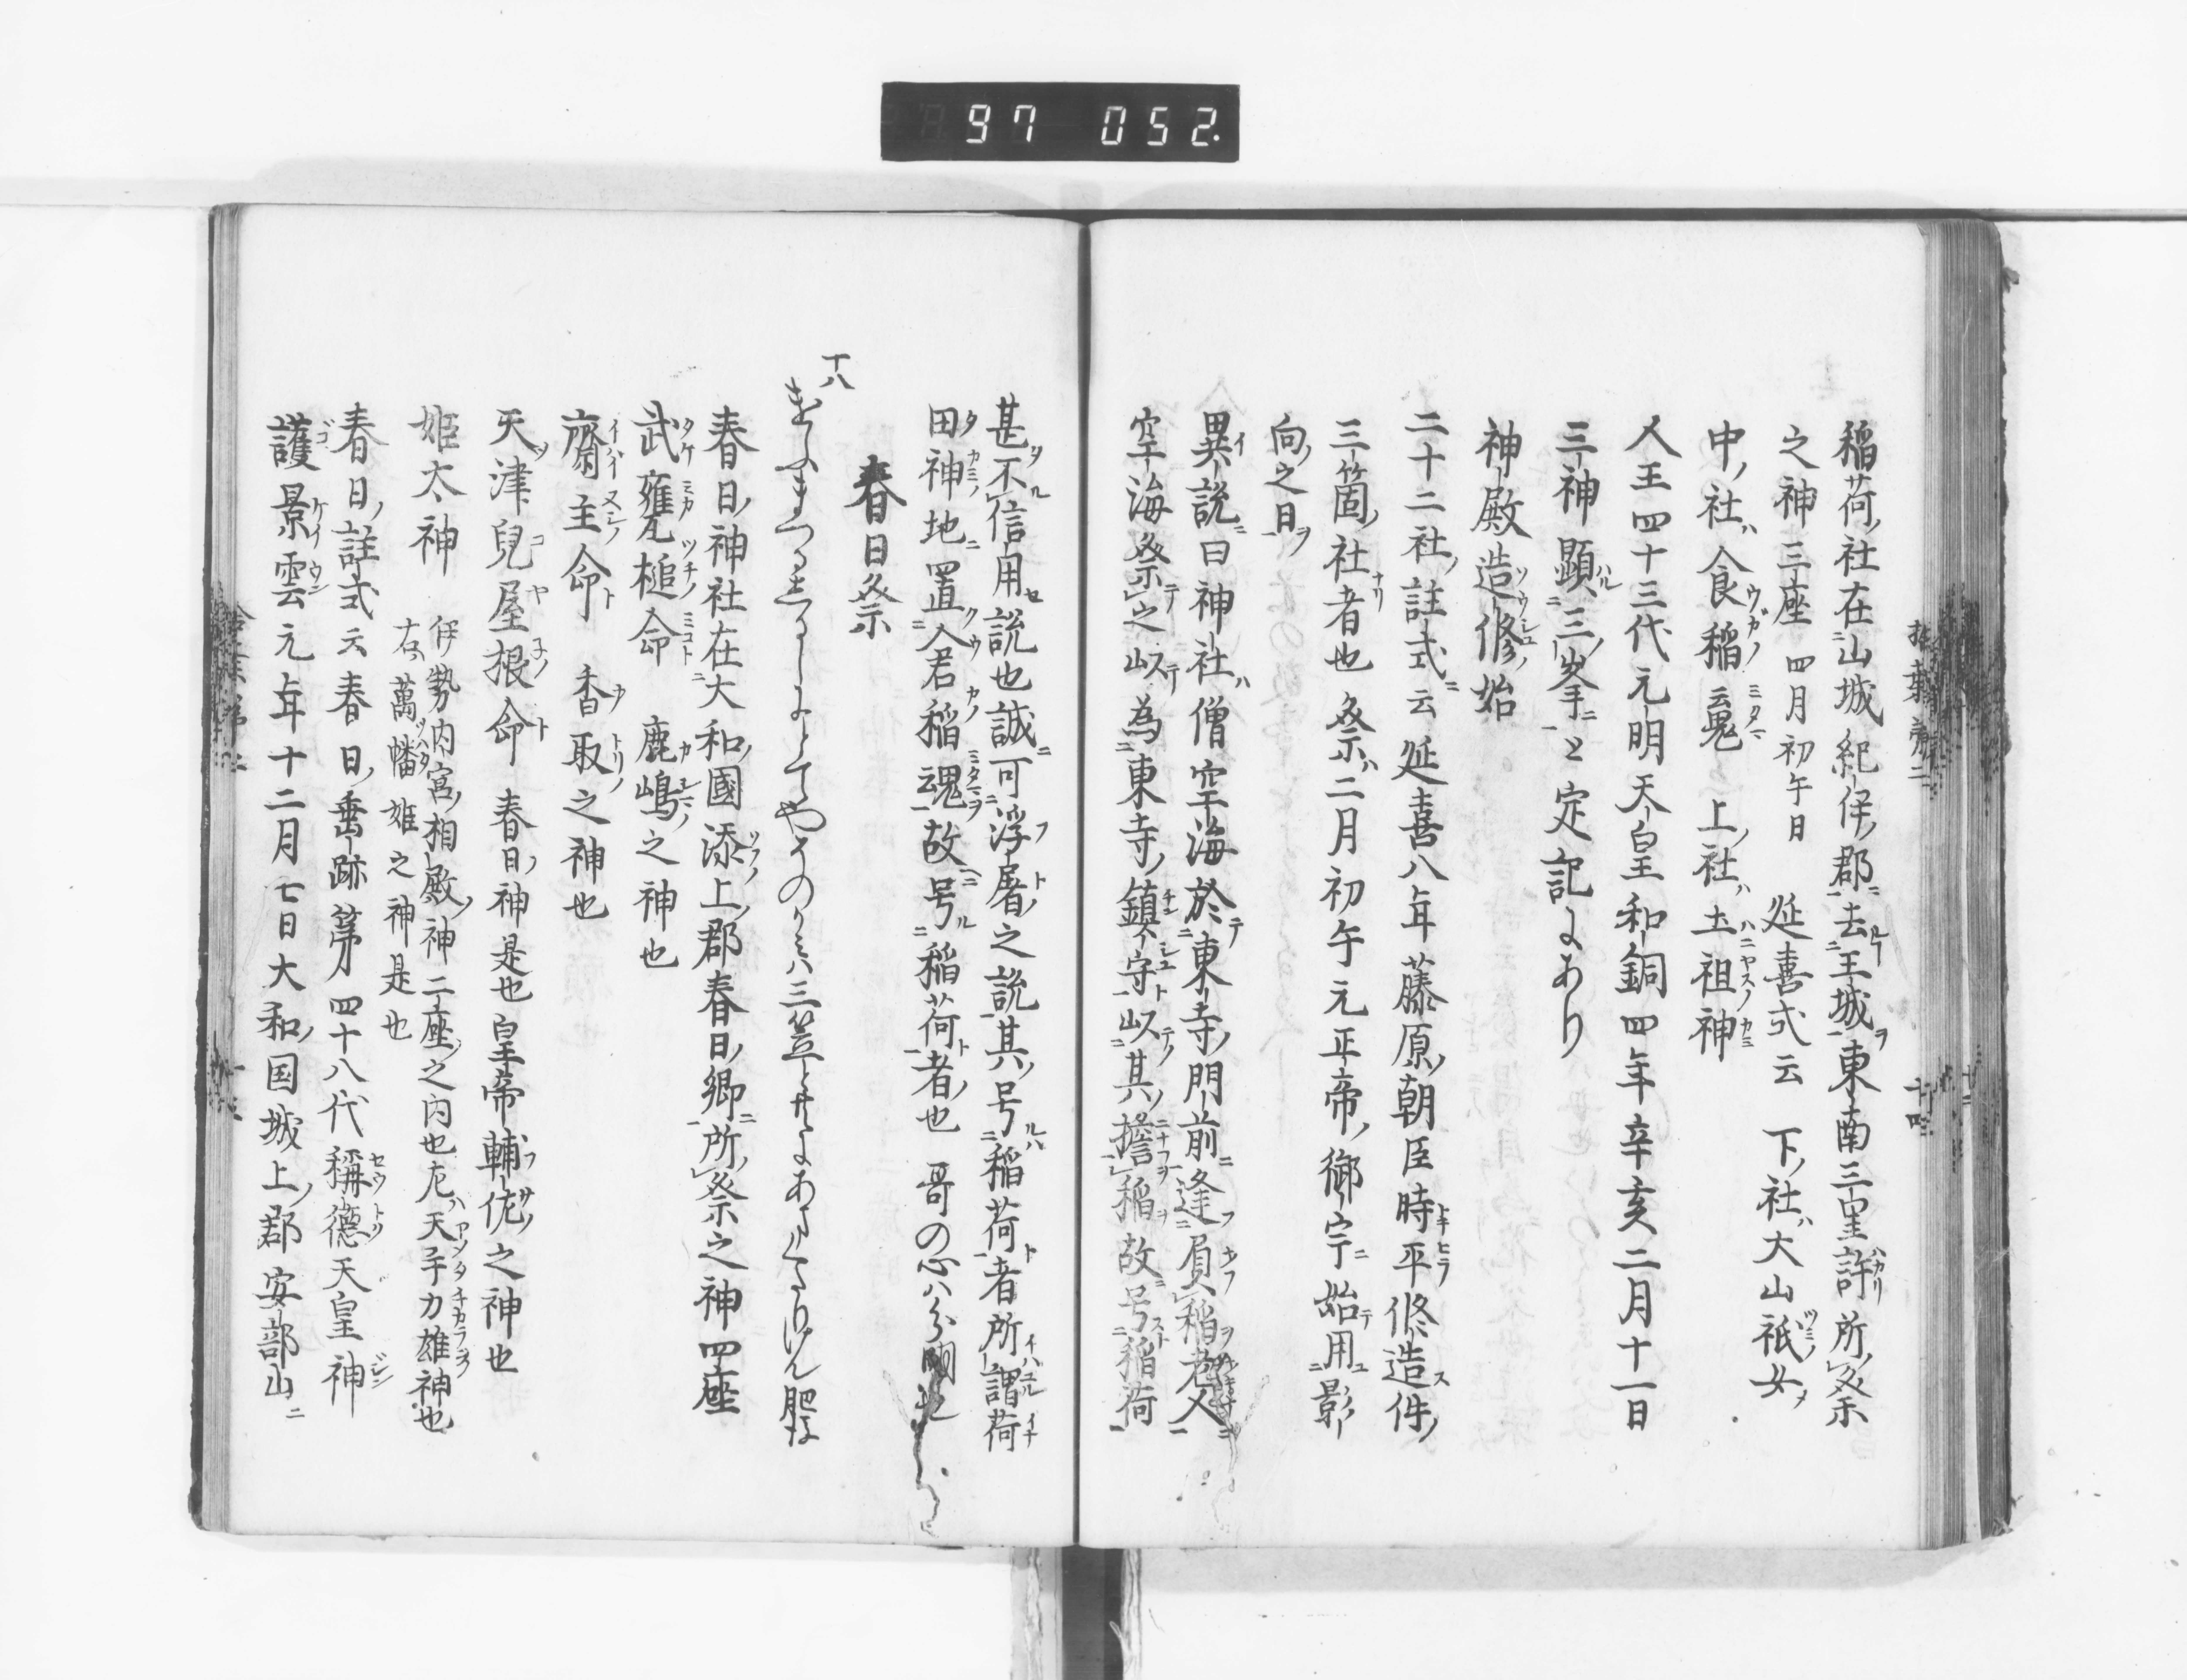 97 052.
稲荷ノ社在ニ山城紀伊ノ郡ニ去ニ王城ヲ東南三里許所祭
之神三座四月初午日 延喜式云 下ノ社ハ大山祇女
中ノ社ハ食稲魂 上ノ社ハ土祖神
人王四十三代元明天皇和銅四年辛亥二月十一日
三神顕ニ三ノ峯ニと定記にあり
神殿造修ノ始
二十二社註式ニ云延喜八年藤原ノ朝臣時平修造ス件ノ
三箇ノ社者也祭ハ二月初午元正帝ノ御宇ニ始テ用ニ影
向ノ之日ヲ
異説ニ曰神社ハ僧空海於ニ東寺ノ門前ニ逢ニ負稲老人
空海祭之以為ニ東寺ノ鎮守ト以ニ其ノ擔稲ヲ故号ニ稲荷
甚不信用説也誠ニ可ニ浮屠之説其ノ号ニ稲荷ト者所謂荷
田神地ニ置ニ倉稲魂ヲ故号ニ稲荷ト者也 哥の心ハ分明也
春日祭
十八
春日ノ神社在ニ大和ノ國添上ノ郡春日ノ郷ニ所祭之神四座
武甕槌命 鹿嶋之神也
齋主命 香取之神也
天津兒屋根命 春日ノ神是也皇帝輔佐之神也
姫太神 伊勢内宮ノ相殿ノ神二座之内也左ハ天手力雄神也
右ハ萬幡姫之神是也
春日ノ註式云春日ノ垂跡第四十八代稱德天皇神
護景雲元年十二月七日大和ノ国城上ノ郡安部山ニ